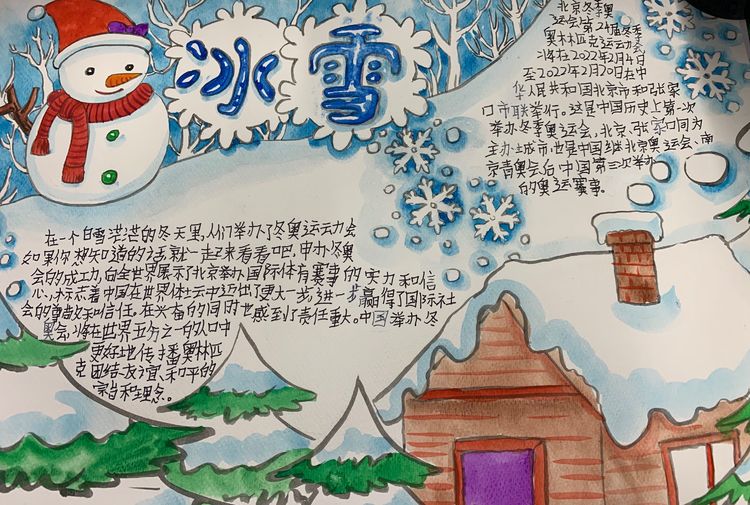 冰雪
北京冬季奥
运会第24届冬季
奥林匹克运动会
将在2022年2月4日
至2022年2月20日在中
华人民共和国北京市和张家
口市联举行。这是中国历史上第一次
举办冬季奥运会，北京、张家口同为
主办城市，也是中国继北京奥运会、南
京青奥会后中国第三次举办
的奥运赛事。
在一个白雪茫茫的冬天里，人们举办了冬奥运动会
如果你想知道的话就一起来看看吧，申办冬奥
会的成功，向全世界展示了北京举办国际体育赛事的实力和信
心，标志着中国在世界体坛中迈出了更大一步，进一步赢得了国际社
会的尊敬和信任。在兴奋的同时也感到了责任重大。中国举办冬
奥会，将在世界五分之一的人口中
更好地传播奥林匹
克团结、友谊、和平的
宗旨和理念。